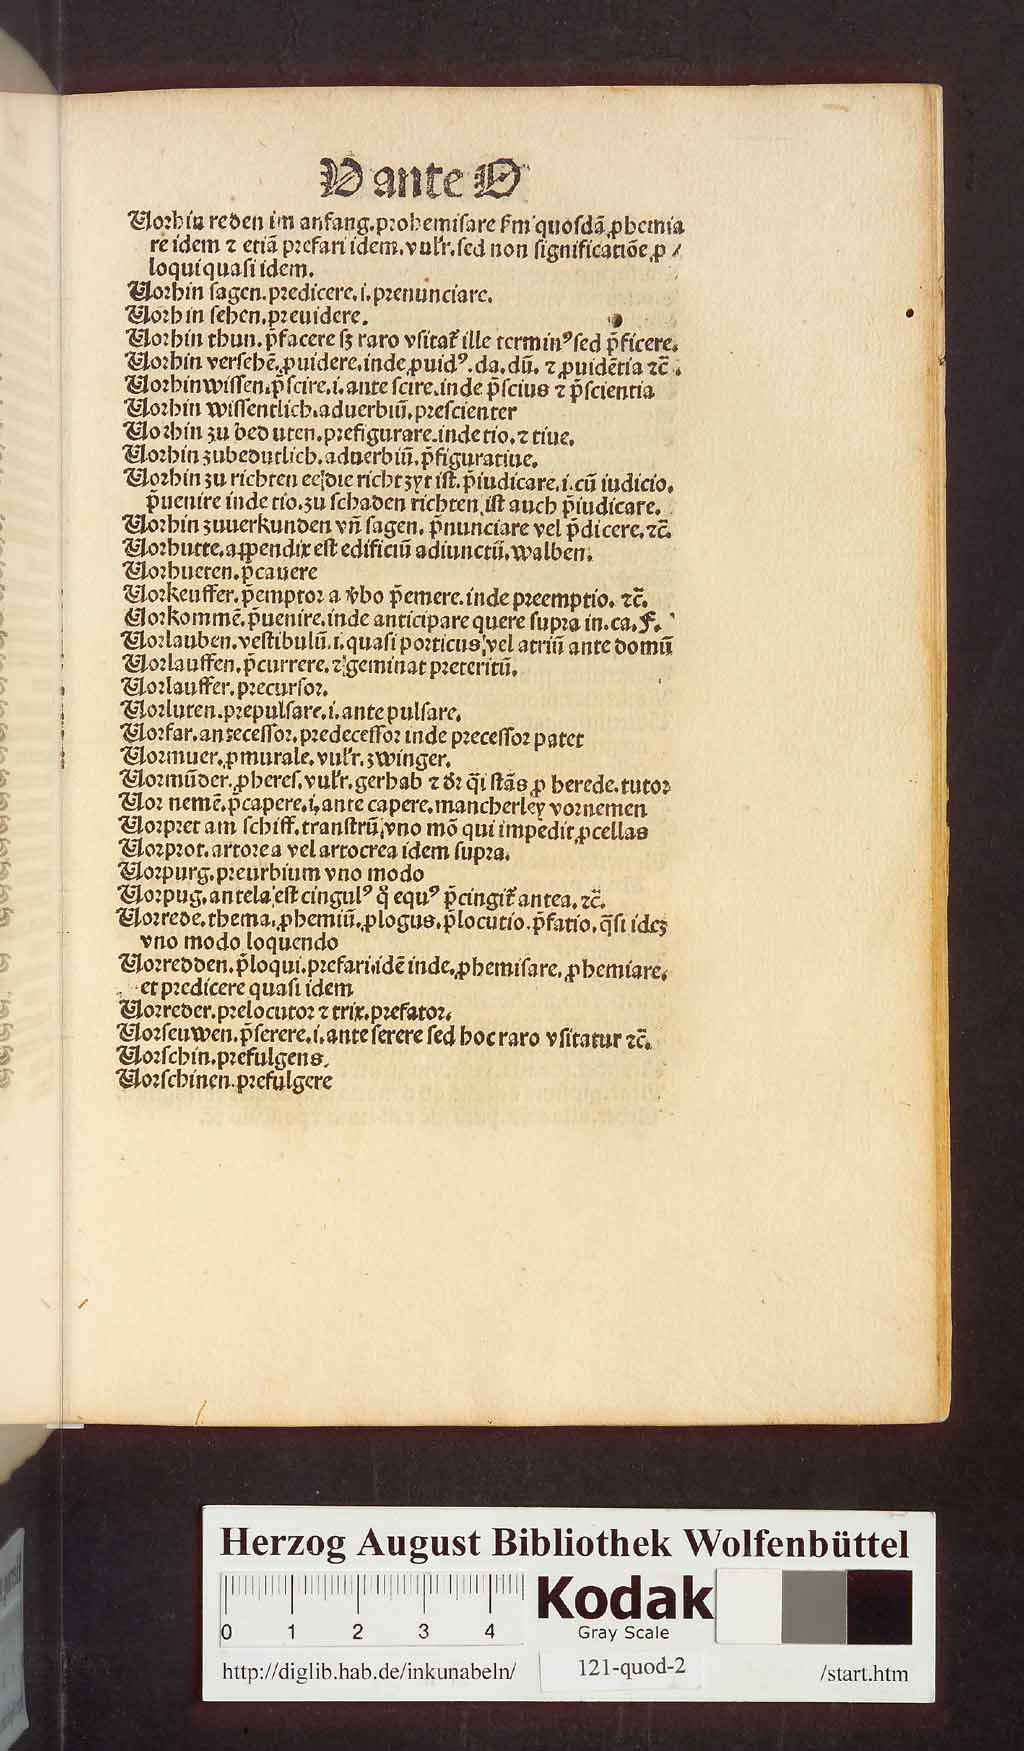 V ante O
Vorhin reden im anfang. prohemisare ẜm quosdā ꝓhemia
re idem ⁊ etiā prefari idem. vulr̄. sed non significatiōe ꝓ /
loqui quasi idem.
Vorhin sagen. predicere. i. prenunciare.
Vorhin sehen. preuidere.
Vorhin thun. p̄facere sꝫ raro vsitat̄ ille terminꝰ sed p̄ficere.
Vorhin versehē. ꝓuidere. inde ꝓuidꝰ. da. dū. ⁊ ꝓuidētia ⁊c̄.
Vorhin wissen. p̄scire. i. ante scire. inde p̄scius ⁊ p̄scientia
Vorhin wissentlich. aduerbiū. prescienter
Vorhin zu beduten. prefigurare. inde tio. ⁊ tiue.
Vorhin zubedutlich. aduerbiū. p̄figuratiue.
Vorhin zu richten ee die richt zyt ist. p̄iudicare. i. cū iudicio.
p̄uenire inde tio. zu schaden richten ist auch p̄iudicare.
Vorhin zuuerkunden vn̄ sagen. p̄nunciare vel p̄dicere. ⁊c̄.
Vorhutte. appendix est edificiū adiunctū. walben.
Vorhueten. p̄cauere
Vorkeuffer. p̄emptor a v̄bo p̄emere. inde preemptio. ⁊c̄.
Vorkommē. p̄uenire. inde anticipare quere supra in. ca. F.
Vorlauben. vestibulū. i. quasi porticus vel atriū ante domū
Vorlauffen. p̄currere. ⁊ geminat preteritū.
Vorlauffer. precursor.
Vorluten. prepulsare. i. ante pulsare.
Vorfar. antecessor. predecessor inde precessor patet
Vormuer. ꝓmurale. vulr̄. zwinger.
Vormūder. ꝓheres. vulr̄. gerhab ⁊ dr̄ q̄i stās ꝓ herede. tutor
Vor nemē. p̄capere. i. ante capere. mancherley vornemen
Vorpret am schiff. transtrū vno mō qui impedit ꝓcellas
Vorprot. artorea vel artocrea idem supra.
Vorpurg. preurbium vno modo
Vorpug. antela est cingulꝰ q̄ equꝰ p̄cingit̄ antea. ⁊c̄.
Vorrede. thema. ꝓhemiū. ꝓlogus. p̄locutio. p̄fatio. q̄si ideꝫ
vno modo loquendo
Vorredden. p̄loqui. prefari. idē inde. ꝓhemisare. ꝓhemiare.
et predicere quasi idem
Vorreder. prelocutor ⁊ trix. prefator.
Vorseuwen. p̄serere. i. ante serere sed hoc raro vsitatur ⁊c̄.
Vorschin. prefulgens.
Vorschinen. prefulgere
Herzog August Bibliothek Wolfenbüttel
Kodak
Gray Scale
0 1 2 3 4
http://diglib.hab.de/inkunabeln/ 121-quod-2 /start.htm